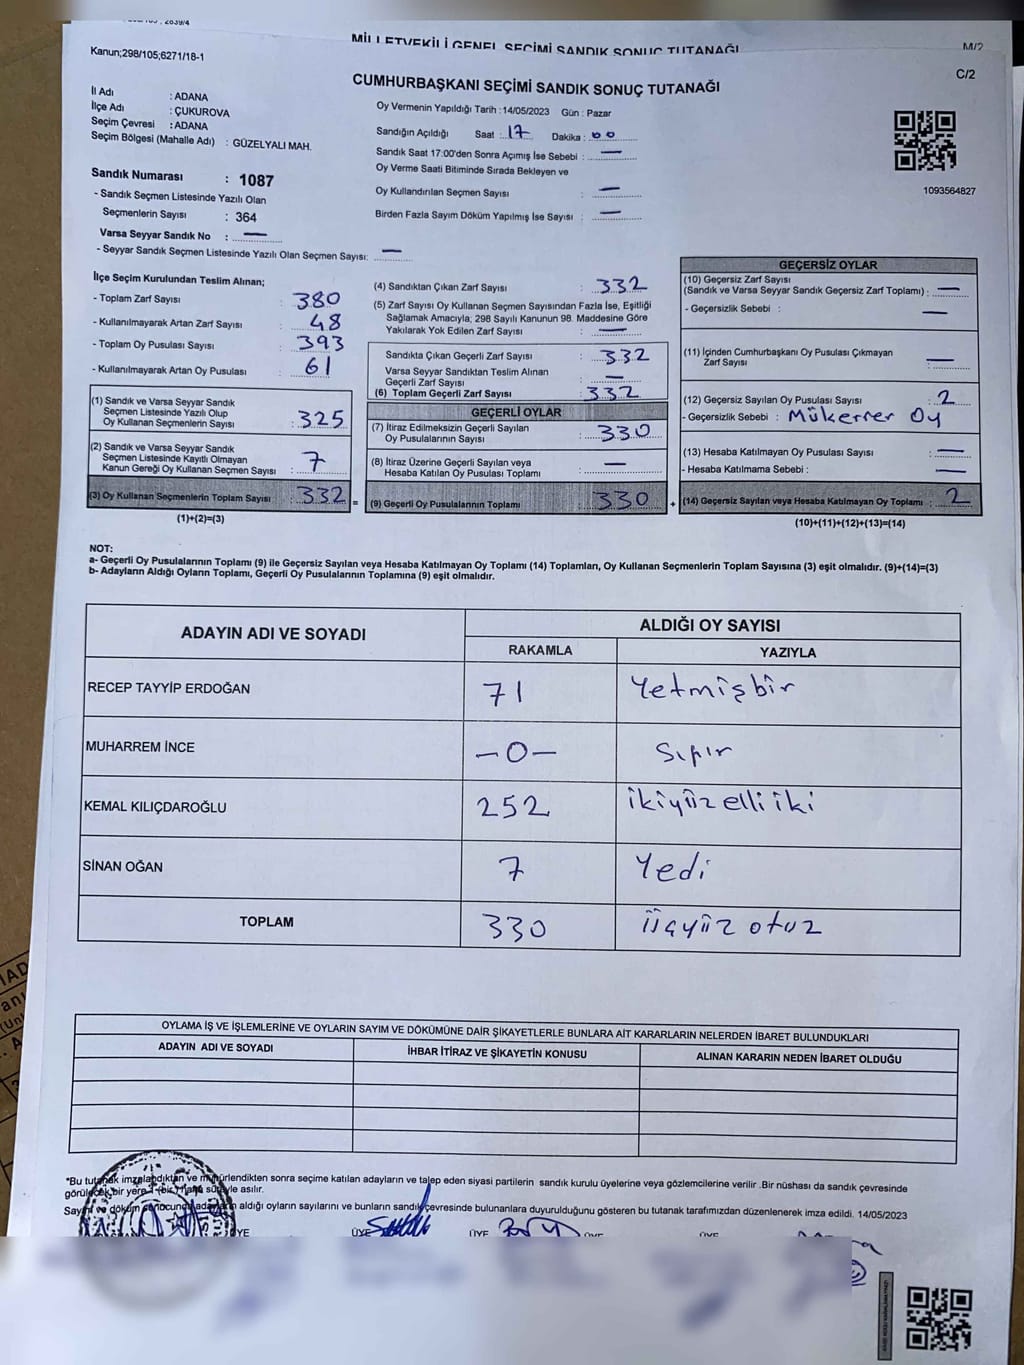 MİLLETVEKİLİ GENEL SEÇİMİ SANDIK SONUÇ TUTANAĞI
M/2
Kanun;298/105;6271/18-1
C/2
CUMHURBAŞKANI SEÇİMİ SANDIK SONUÇ TUTANAĞI
İl Adı : ADANA
İlçe Adı : ÇUKUROVA
Seçim Çevresi : ADANA
Seçim Bölgesi (Mahalle Adı) : GÜZELYALI MAH.
Sandık Numarası : 1087
- Sandık Seçmen Listesinde Yazılı Olan
Seçmenlerin Sayısı : 364
Varsa Seyyar Sandık No : —
- Seyyar Sandık Seçmen Listesinde Yazılı Olan Seçmen Sayısı: —
Oy Vermenin Yapıldığı Tarih :14/05/2023 Gün : Pazar
Sandığın Açıldığı Saat : 17 Dakika : 00
Sandık Saat 17:00'den Sonra Açımış İse Sebebi : —
Oy Verme Saati Bitiminde Sırada Bekleyen ve
Oy Kullandırılan Seçmen Sayısı : —
Birden Fazla Sayım Döküm Yapılmış İse Sayısı : —
1093564827
İlçe Seçim Kurulundan Teslim Alınan;
- Toplam Zarf Sayısı : 380
- Kullanılmayarak Artan Zarf Sayısı : 48
- Toplam Oy Pusulası Sayısı : 393
- Kullanılmayarak Artan Oy Pusulası : 61
(1) Sandık ve Varsa Seyyar Sandık
Seçmen Listesinde Yazılı Olup
Oy Kullanan Seçmenlerin Sayısı : 325
(2) Sandık ve Varsa Seyyar Sandık
Seçmen Listesinde Kayıtlı Olmayan
Kanun Gereği Oy Kullanan Seçmen Sayısı : 7
(3) Oy Kullanan Seçmenlerin Toplam Sayısı : 332
(1)+(2)=(3)
(4) Sandıktan Çıkan Zarf Sayısı : 332
(5) Zarf Sayısı Oy Kullanan Seçmen Sayısından Fazla İse, Eşitliği
Sağlamak Amacıyla; 298 Sayılı Kanunun 98. Maddesine Göre
Yakılarak Yok Edilen Zarf Sayısı : —
Sandıkta Çıkan Geçerli Zarf Sayısı : 332
Varsa Seyyar Sandıktan Teslim Alınan
Geçerli Zarf Sayısı : —
(6) Toplam Geçerli Zarf Sayısı : 332
GEÇERLİ OYLAR
(7) İtiraz Edilmeksizin Geçerli Sayılan
Oy Pusulalarının Sayısı : 330
(8) İtiraz Üzerine Geçerli Sayılan veya
Hesaba Katılan Oy Pusulası Toplamı : —
= (9) Geçerli Oy Pusulalarının Toplamı : 330
GEÇERSİZ OYLAR
(10) Geçersiz Zarf Sayısı
(Sandık ve Varsa Seyyar Sandık Geçersiz Zarf Toplamı) : —
- Geçersizlik Sebebi : —
(11) İçinden Cumhurbaşkanı Oy Pusulası Çıkmayan
Zarf Sayısı : —
(12) Geçersiz Sayılan Oy Pusulası Sayısı : 2
- Geçersizlik Sebebi : Mükerrer Oy
(13) Hesaba Katılmayan Oy Pusulası Sayısı : —
- Hesaba Katılmama Sebebi : —
+ (14) Geçersiz Sayılan veya Hesaba Katılmayan Oy Toplamı : 2
(10)+(11)+(12)+(13)=(14)
NOT:
a- Geçerli Oy Pusulalarının Toplamı (9) ile Geçersiz Sayılan veya Hesaba Katılmayan Oy Toplamı (14) Toplamları, Oy Kullanan Seçmenlerin Toplam Sayısına (3) eşit olmalıdır. (9)+(14)=(3)
b- Adayların Aldığı Oyların Toplamı, Geçerli Oy Pusulalarının Toplamına (9) eşit olmalıdır.
ADAYIN ADI VE SOYADI
ALDIĞI OY SAYISI
RAKAMLA YAZIYLA
RECEP TAYYİP ERDOĞAN 71 Yetmişbir
MUHARREM İNCE —0— Sıfır
KEMAL KILIÇDAROĞLU 252 ikiyüz elli iki
SİNAN OĞAN 7 Yedi
TOPLAM 330 üçyüz otuz
OYLAMA İŞ VE İŞLEMLERİNE VE OYLARIN SAYIM VE DÖKÜMÜNE DAİR ŞİKAYETLERLE BUNLARA AİT KARARLARIN NELERDEN İBARET BULUNDUKLARI
ADAYIN ADI VE SOYADI İHBAR İTİRAZ VE ŞİKAYETİN KONUSU ALINAN KARARIN NEDEN İBARET OLDUĞU
*Bu tutanak imzalandıktan ve mühürlendikten sonra seçime katılan adayların ve talep eden siyasi partilerin sandık kurulu üyelerine veya gözlemcilerine verilir .Bir nüshası da sandık çevresinde
görülecek bir yere 1 (bir) süreyle asılır.
Sayım ve döküm sonucunda adayların aldığı oyların sayılarını ve bunların sandık çevresinde bulunanlara duyurulduğunu gösteren bu tutanak tarafımızdan düzenlenerek imza edildi. 14/05/2023
ÜYE ÜYE ÜYE ÜYE